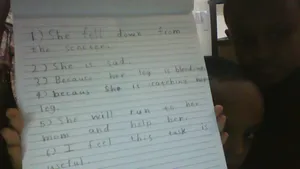 1) She fell down from
the scooter.
2) She is sad.
3) Because her leg is bleeding
4) because she is catching her
leg.
5) She will run to her
mom and help her.
6) I feel this task is
useful.